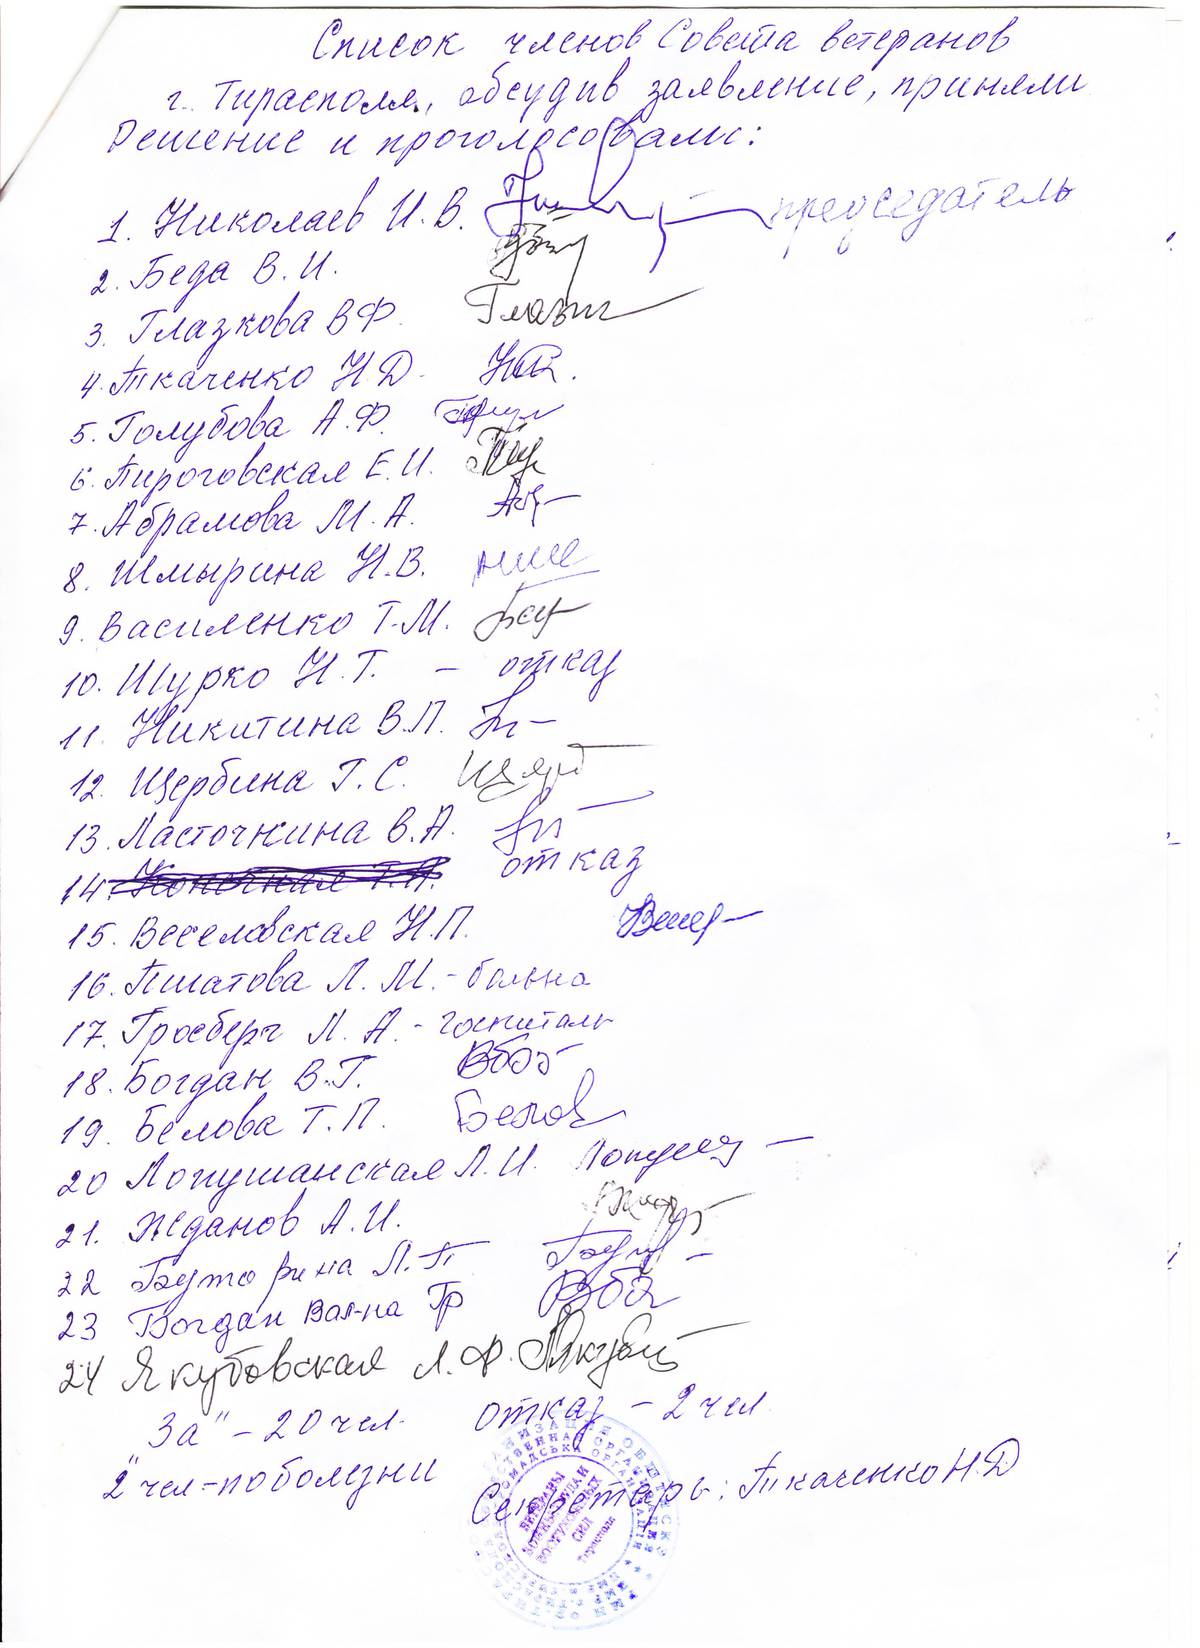 Список членов Совета ветеранов
г. Тирасполя, обсудив заявление, приняли
Решение и проголосовали:
1. Николаев И.В. – председатель
2. Беда В.И.
3. Глазкова В.Ф.
4. Ткаченко Н.Д.
5. Голубова А.Ф.
6. Пироговская Е.И.
7. Абрамова М.А.
8. Шмырина Н.В.
9. Василенко Т.М.
10. Шурко Н.Т. – отказ
11. Никитина В.П.
12. Щербина Г.С.
13. Ласточкина В.А.
14. отказ
15. Веселовская Н.П.
16. Пшатова Л.М. - больна
17. Гросберг Л.А. - госпиталь
18. Богдан В.Г.
19. Белова Т.П. Белов
20 Лопушанская Л.И.
21. Жданов А.И.
22 Буторина Л.П
23 Богдан Вал-на Гр
24 Якубовская Л.Ф.
За" – 20 чел. отказ – 2 чел
2 чел – по болезни
Секретарь: Ткаченко Н.Д
ВЕТЕРАНЫ
ВОЙНЫ ТРУДА И
ВООРУЖЕННЫХ
СИЛ
Тирасполя